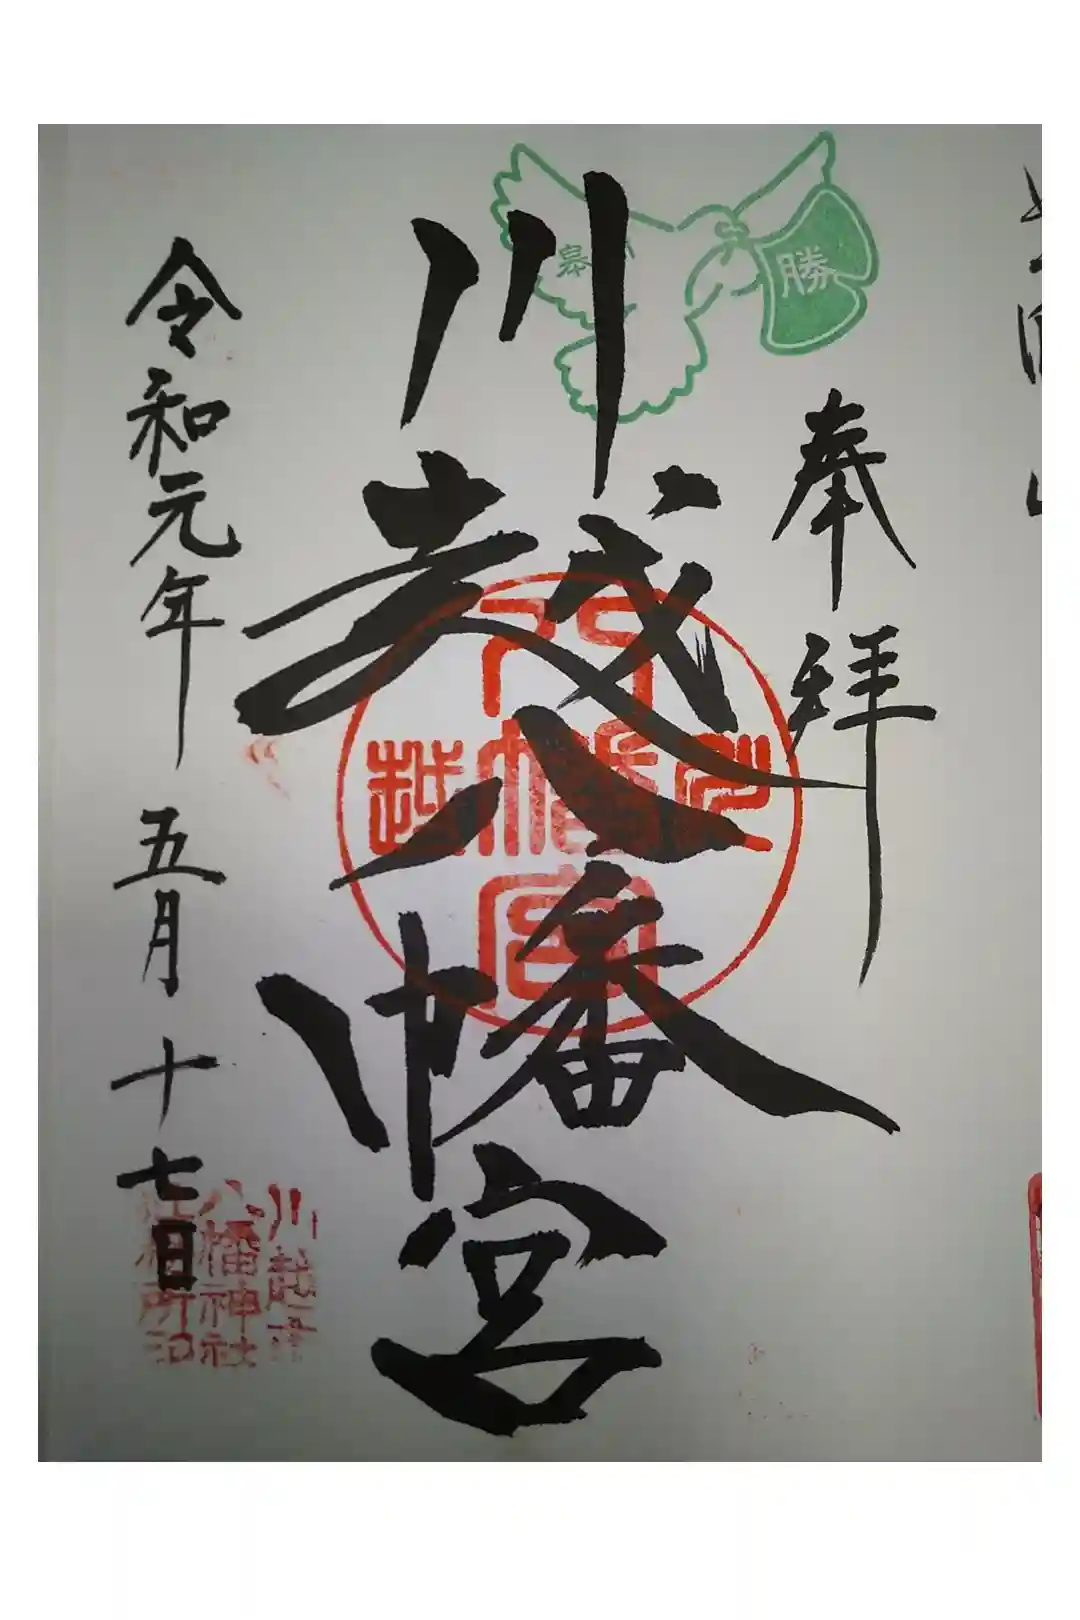 奉拝
勝
川越八幡宮
川越八幡宮
令和元年 五月 十七日
川越
八幡神社